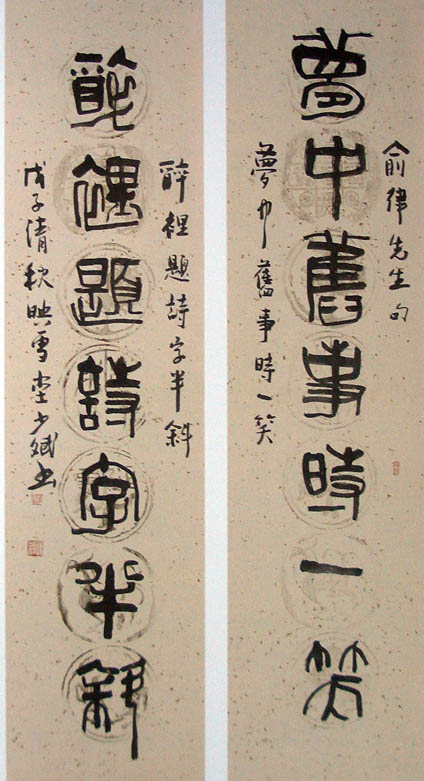 俞律先生句
夢中舊事時一笑
夢中舊事時一笑
醉裡題詩字半斜
醉裡題詩字半斜
戊子清秋映雪堂少斌書